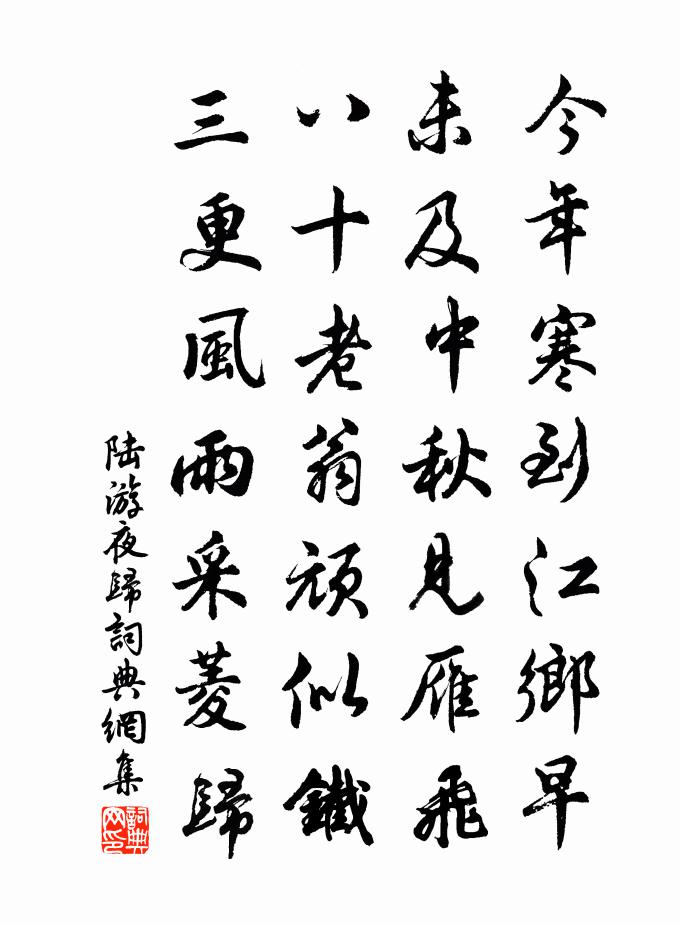 今年寒到江鄉早
未及中秋見雁飛
八十老翁頑似鐵
三更風雨采菱歸
陸游夜歸詞典網集
詞典网印